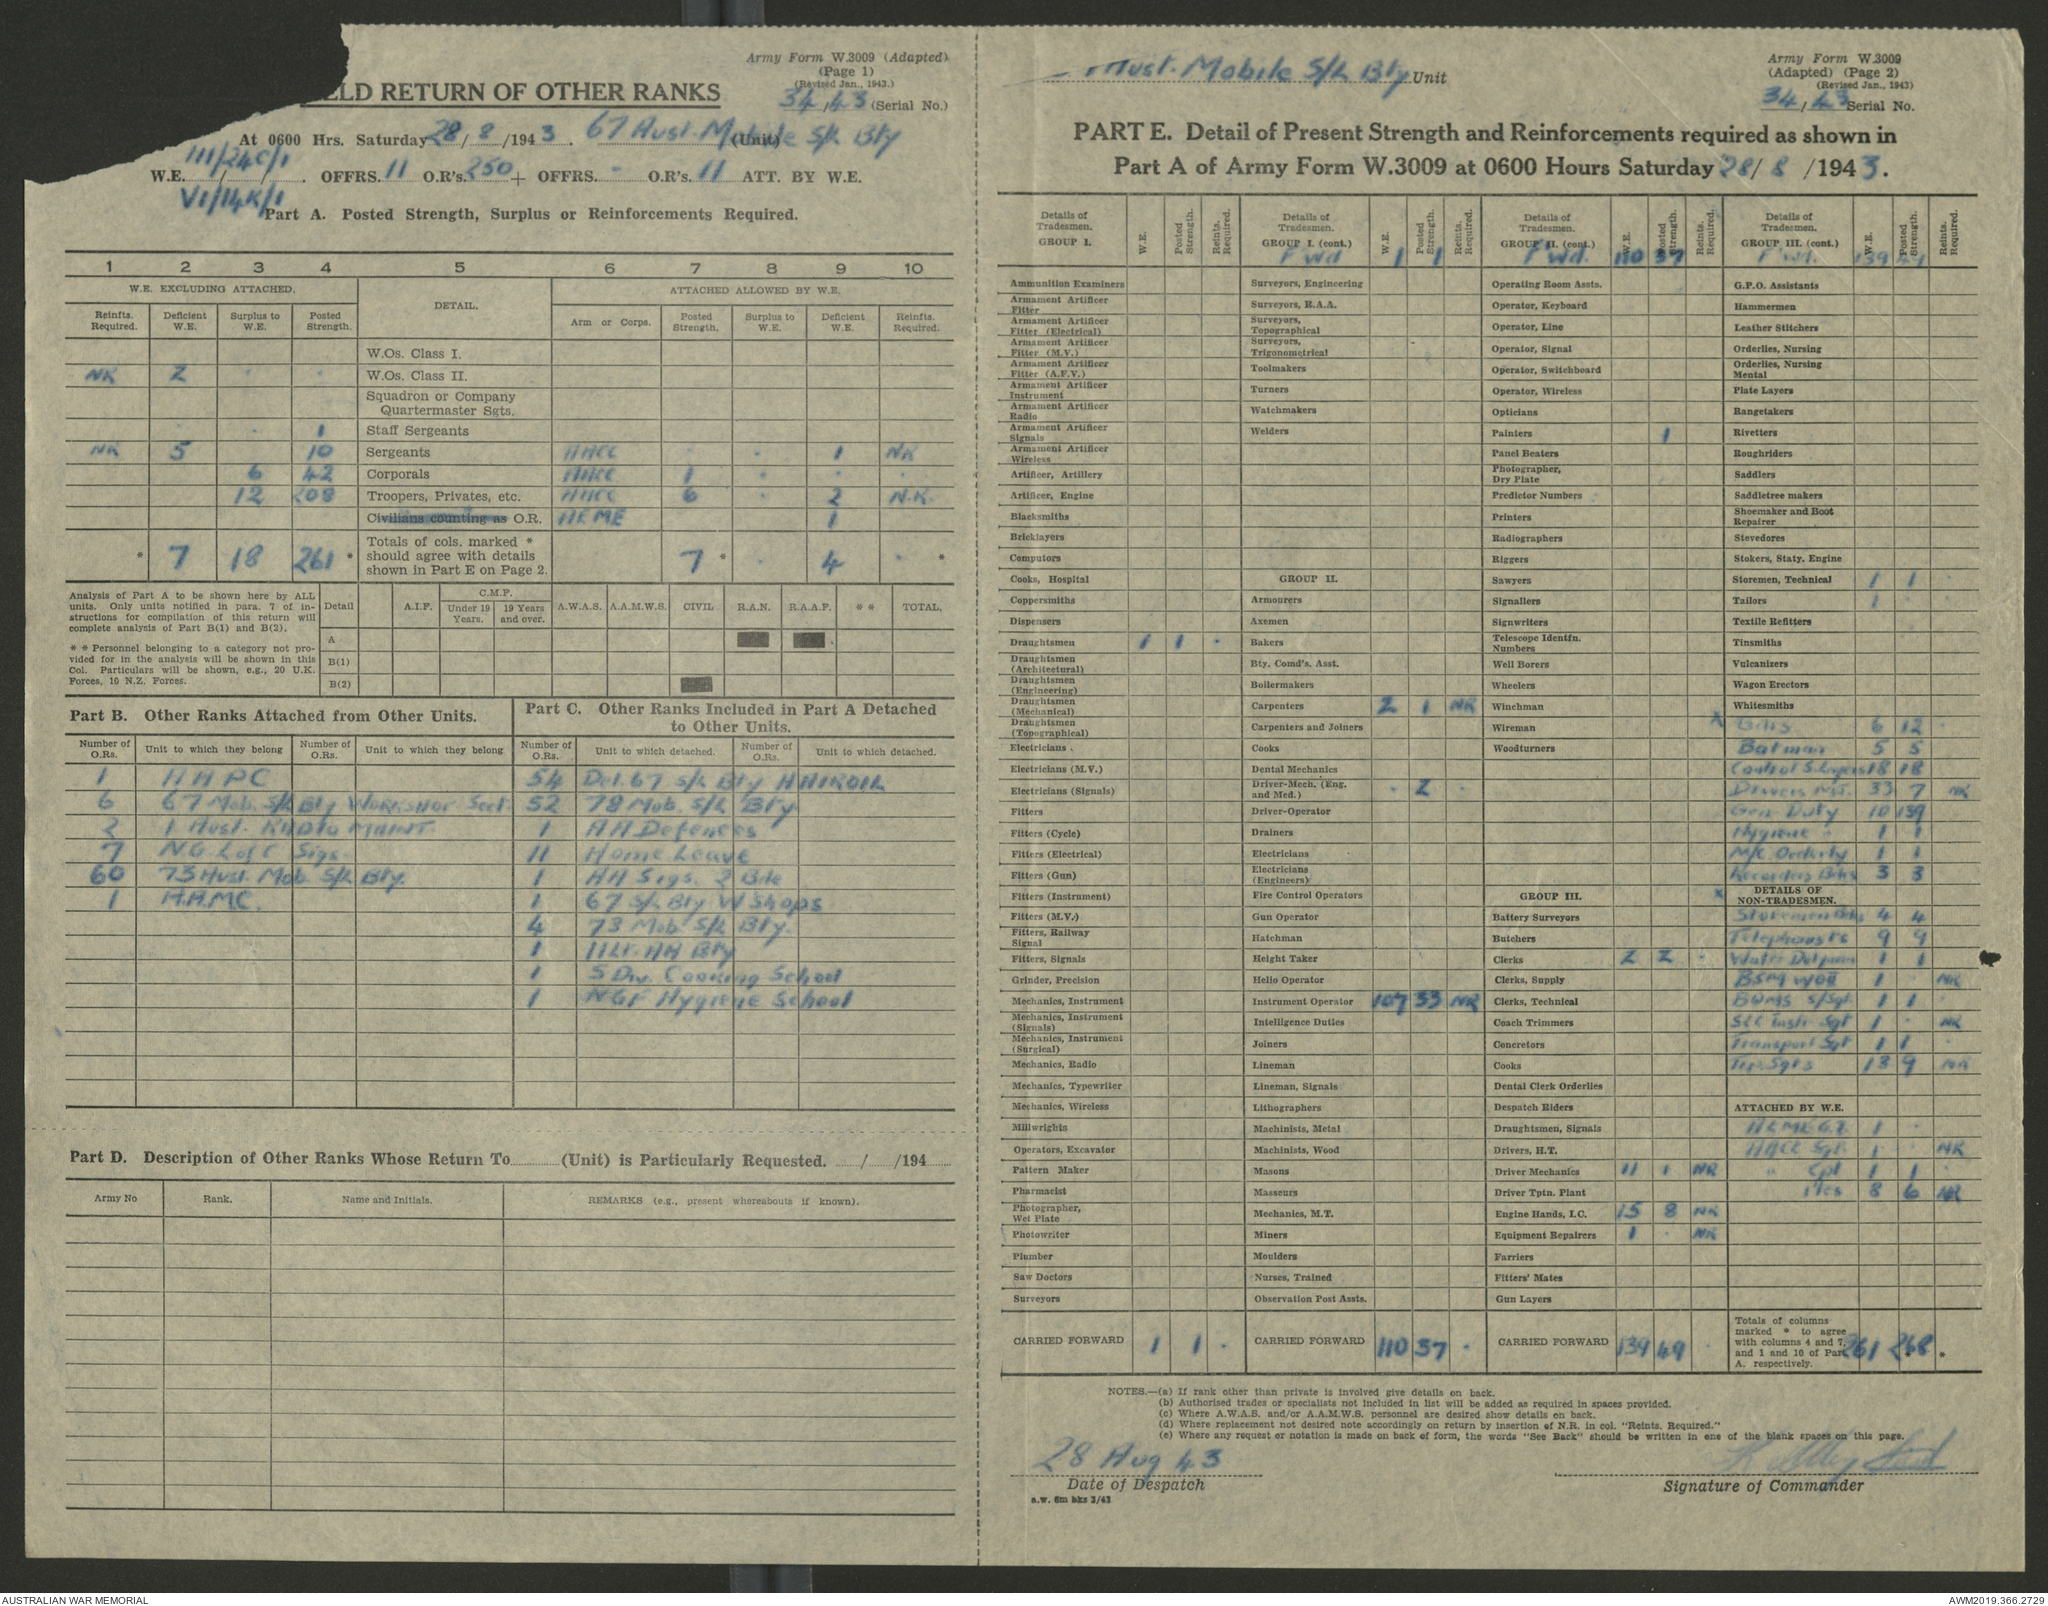 Army Form W.3009 (Adapted)
(Page 1)
(Revised Jan., 1943.)
34/43 (Serial No.)
ELD RETURN OF OTHER RANKS
At 0600 Hrs. Saturday 28/8/1943. 67 Aust. Mobile S/L Bty (Unit)
III/24C/1
W.E. / / . OFFRS. 11 O.R's. 250 + OFFRS. - O.R's. 11 ATT. BY W.E.
VI/14K/1
Part A. Posted Strength, Surplus or Reinforcements Required.
1 2 3 4 5 6 7 8 9 10
W.E. EXCLUDING ATTACHED. DETAIL. ATTACHED ALLOWED BY W.E.
Reinfts. Required. Deficient W.E. Surplus to W.E. Posted Strength. Arm or Corps. Posted Strength. Surplus to W.E. Deficient W.E. Reinfts. Required.
W.Os. Class I.
NR 2 . . W.Os. Class II.
Squadron or Company Quartermaster Sgts.
. . 1 Staff Sergeants
NR 5 10 Sergeants AACC . . 1 NR
6 42 Corporals AACC 1 . . .
12 208 Troopers, Privates, etc. AACC 6 . 2 N.R.
Civilians counting as O.R. AEME 1
* 7 18 261 * Totals of cols. marked * should agree with details shown in Part E on Page 2. 7 * . 4 . *
Analysis of Part A to be shown here by ALL units. Only units notified in para. 7 of instructions for compilation of this return will complete analysis of Part B(1) and B(2).
* * Personnel belonging to a category not provided for in the analysis will be shown in this Col. Particulars will be shown, e.g., 20 U.K. Forces, 10 N.Z. Forces.
Detail A.I.F. C.M.F. Under 19 Years. 19 Years and over. A.W.A.S. A.A.M.W.S. CIVIL R.A.N. R.A.A.F. * * TOTAL.
A
B(1)
B(2)
Part B. Other Ranks Attached from Other Units.
Number of O.Rs. Unit to which they belong Number of O.Rs. Unit to which they belong
1 AAPC
6 67 Mob. S/L Bty Workshop Sect.
2 1 Aust. Radio MAINT.
7 NG L of C Sigs.
60 73 Aust. Mob S/L Bty.
1 A.A.M.C.
Part C. Other Ranks Included in Part A Detached to Other Units.
Number of O.Rs. Unit to which detached. Number of O.Rs. Unit to which detached.
54 Det. 67 S/L Bty
52 78 Mob. S/L Bty
1 AA Defences
11 Home Leave
1 AA Sigs. 2 Bde
1 67 S/L Bty W Shops
4 73 Mob S/L Bty.
1 Lt. AA Bty
1 5 Div. Cooking School
1 NGF Hygiene School
Part D. Description of Other Ranks Whose Return To (Unit) is Particularly Requested. / /194
Army No Rank. Name and Initials. REMARKS (e.g., present whereabouts if known).
Aust. Mobile S/L Bty Unit
Army Form W.3009
(Adapted) (Page 2)
(Revised Jan., 1943)
34/43 Serial No.
PART E. Detail of Present Strength and Reinforcements required as shown in
Part A of Army Form W.3009 at 0600 Hours Saturday 28/8/1943.
Details of Tradesmen. GROUP I. W.E. Posted Strength. Reints. Required.
Ammunition Examiners
Armament Artificer Fitter
Armament Artificer Fitter (Electrical)
Armament Artificer Fitter (M.V.)
Armament Artificer Fitter (A.F.V.)
Armament Artificer Instrument
Armament Artificer Radio
Armament Artificer Signals
Armament Artificer Wireless
Artificer, Artillery
Artificer, Engine
Blacksmiths
Bricklayers
Computors
Cooks, Hospital
Coppersmiths
Dispensers
Draughtsmen 1 1 .
Draughtsmen (Architectural)
Draughtsmen (Engineering)
Draughtsmen (Mechanical)
Draughtsmen (Topographical)
Electricians
Electricians (M.V.)
Electricians (Signals)
Fitters
Fitters (Cycle)
Fitters (Electrical)
Fitters (Gun)
Fitters (Instrument)
Fitters (M.V.)
Fitters, Railway Signal
Fitters, Signals
Grinder, Precision
Mechanics, Instrument
Mechanics, Instrument (Signals)
Mechanics, Instrument (Surgical)
Mechanics, Radio
Mechanics, Typewriter
Mechanics, Wireless
Millwrights
Operators, Excavator
Pattern Maker
Pharmacist
Photographer, Wet Plate
Photowriter
Plumber
Saw Doctors
Surveyors
CARRIED FORWARD 1 1 .
Details of Tradesmen. GROUP I. (cont.) W.E. Posted Strength. Reints. Required.
Fwd 1 1
Surveyors, Engineering
Surveyors, R.A.A.
Surveyors, Topographical
Surveyors, Trigonometrical
Toolmakers
Turners
Watchmakers
Welders
GROUP II.
Armourers
Axemen
Bakers
Bty. Comd's. Asst.
Boilermakers
Carpenters 2 1 NR
Carpenters and Joiners
Cooks
Dental Mechanics
Driver-Mech. (Eng. and Med.) . 2 .
Driver-Operator
Drainers
Electricians
Electricians (Engineers)
Fire Control Operators
Gun Operator
Hatchman
Height Taker
Helio Operator
Instrument Operator 107 33 NR
Intelligence Duties
Joiners
Lineman
Lineman, Signals
Lithographers
Machinists, Metal
Machinists, Wood
Masons
Masseurs
Mechanics, M.T.
Miners
Moulders
Nurses, Trained
Observation Post Assts.
CARRIED FORWARD 110 37 .
Details of Tradesmen. GROUP II. (cont.) W.E. Posted Strength. Reints. Required.
Fwd. 110 37
Operating Room Assts.
Operator, Keyboard
Operator, Line
Operator, Signal
Operator, Switchboard
Operator, Wireless
Opticians
Painters 1
Panel Beaters
Photographer, Dry Plate
Predictor Numbers
Printers
Radiographers
Riggers
Sawyers
Signallers
Signwriters
Telescope Identfn. Numbers
Well Borers
Wheelers
Winchman
Wireman
Woodturners
GROUP III.
Battery Surveyors
Butchers
Clerks 2 2 .
Clerks, Supply
Clerks, Technical
Coach Trimmers
Concretors
Cooks
Dental Clerk Orderlies
Despatch Riders
Draughtsmen, Signals
Drivers, H.T.
Driver Mechanics 11 1 NR
Driver Tptn. Plant
Engine Hands, I.C. 15 8 NR
Equipment Repairers 1 . NR
Farriers
Fitters' Mates
Gun Layers
CARRIED FORWARD 139 49 .
Details of Tradesmen. GROUP III. (cont.) W.E. Posted Strength. Reints. Required.
Fwd. 139 49
G.P.O. Assistants
Hammermen
Leather Stitchers
Orderlies, Nursing
Orderlies, Nursing Mental
Plate Layers
Rangetakers
Rivetters
Roughriders
Saddlers
Saddletree makers
Shoemaker and Boot Repairer
Stevedores
Stokers, Staty. Engine
Storemen, Technical 1 1 .
Tailors 1 .
Textile Refitters
Tinsmiths
Vulcanizers
Wagon Erectors
Whitesmiths
x Bdrs 6 12
Batman 5 5
Control 18 18
Drivers M.T. 33 7 NR
Gen. Duty 10 139
Hygiene " 1 1
M/C Orderly 1 1
Recorders Bdrs 3 3
x DETAILS OF NON-TRADESMEN.
Storemen Bdrs 4 4
Telephonists 9 9
Water Dutyman 1 1
BSM WOII 1 NR
BQMS S/Sgt. 1 1
S/L Instr. Sgt 1 . NR
Transport Sgt 1 1 .
Trp. Sgts 13 9 NR
ATTACHED BY W.E.
AEME 1 .
AACC Sgt. 1 . NR
" Cpl 1 1
Ptes 8 6 NR
Totals of columns marked * to agree with columns 4 and 7, and 1 and 10 of Part A. respectively. 261 268 * *
NOTES.—(a) If rank other than private is involved give details on back.
(b) Authorised trades or specialists not included in list will be added as required in spaces provided.
(c) Where A.W.A.S. and/or A.A.M.W.S. personnel are desired show details on back.
(d) Where replacement not desired note accordingly on return by insertion of N.R. in col. "Reints. Required."
(e) Where any request or notation is made on back of form, the words "See Back" should be written in one of the blank spaces on this page.
28 Aug 43
Date of Despatch
a.w. 6m bks 3/43
Signature of Commander
AUSTRALIAN WAR MEMORIAL
AWM2019.366.2729